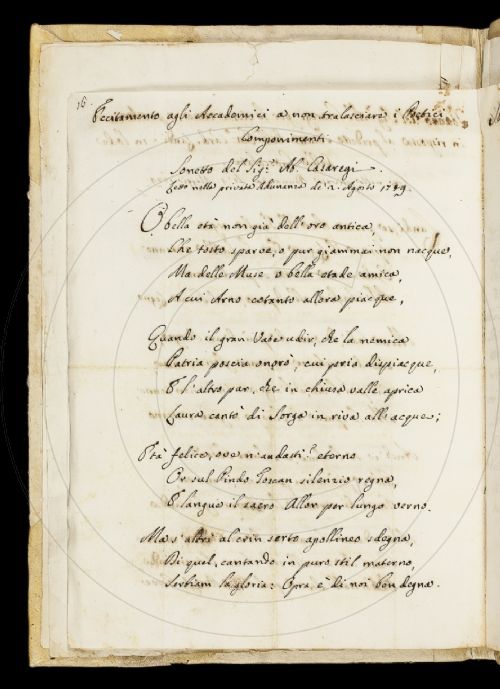 16.
Eccitamento agli Accademici a non tralasciare i Poetici
Componimenti
Sonetto del Sig.r Ab. Casaregi.
Letto nella privata Adunanza de' 2. Agosto
O bella età non già dell'oro antica,
Che tosto sparve, o pur giammai non nacque,
Ma delle Muse o bella etade amica,
A cui Arno cotanto allora piacque,
Quando il gran Vate udir, che la nemica
Patria poscia onorò, cui pria dispiacque,
E l'altro pur, che in chiusa valle aprica
Laura cantò di Sorga in riva all'acque;
Età felice, ove n'andasti? eterno
Or sul Pindo Toscan silenzio regna,
E langue il sacro Allor per lungo verno.
Ma s'altri al crin serto apollineo sdegna,
Di quel, cantando in puro stil materno,
Serbiam la gloria: Opra è di noi ben degna.